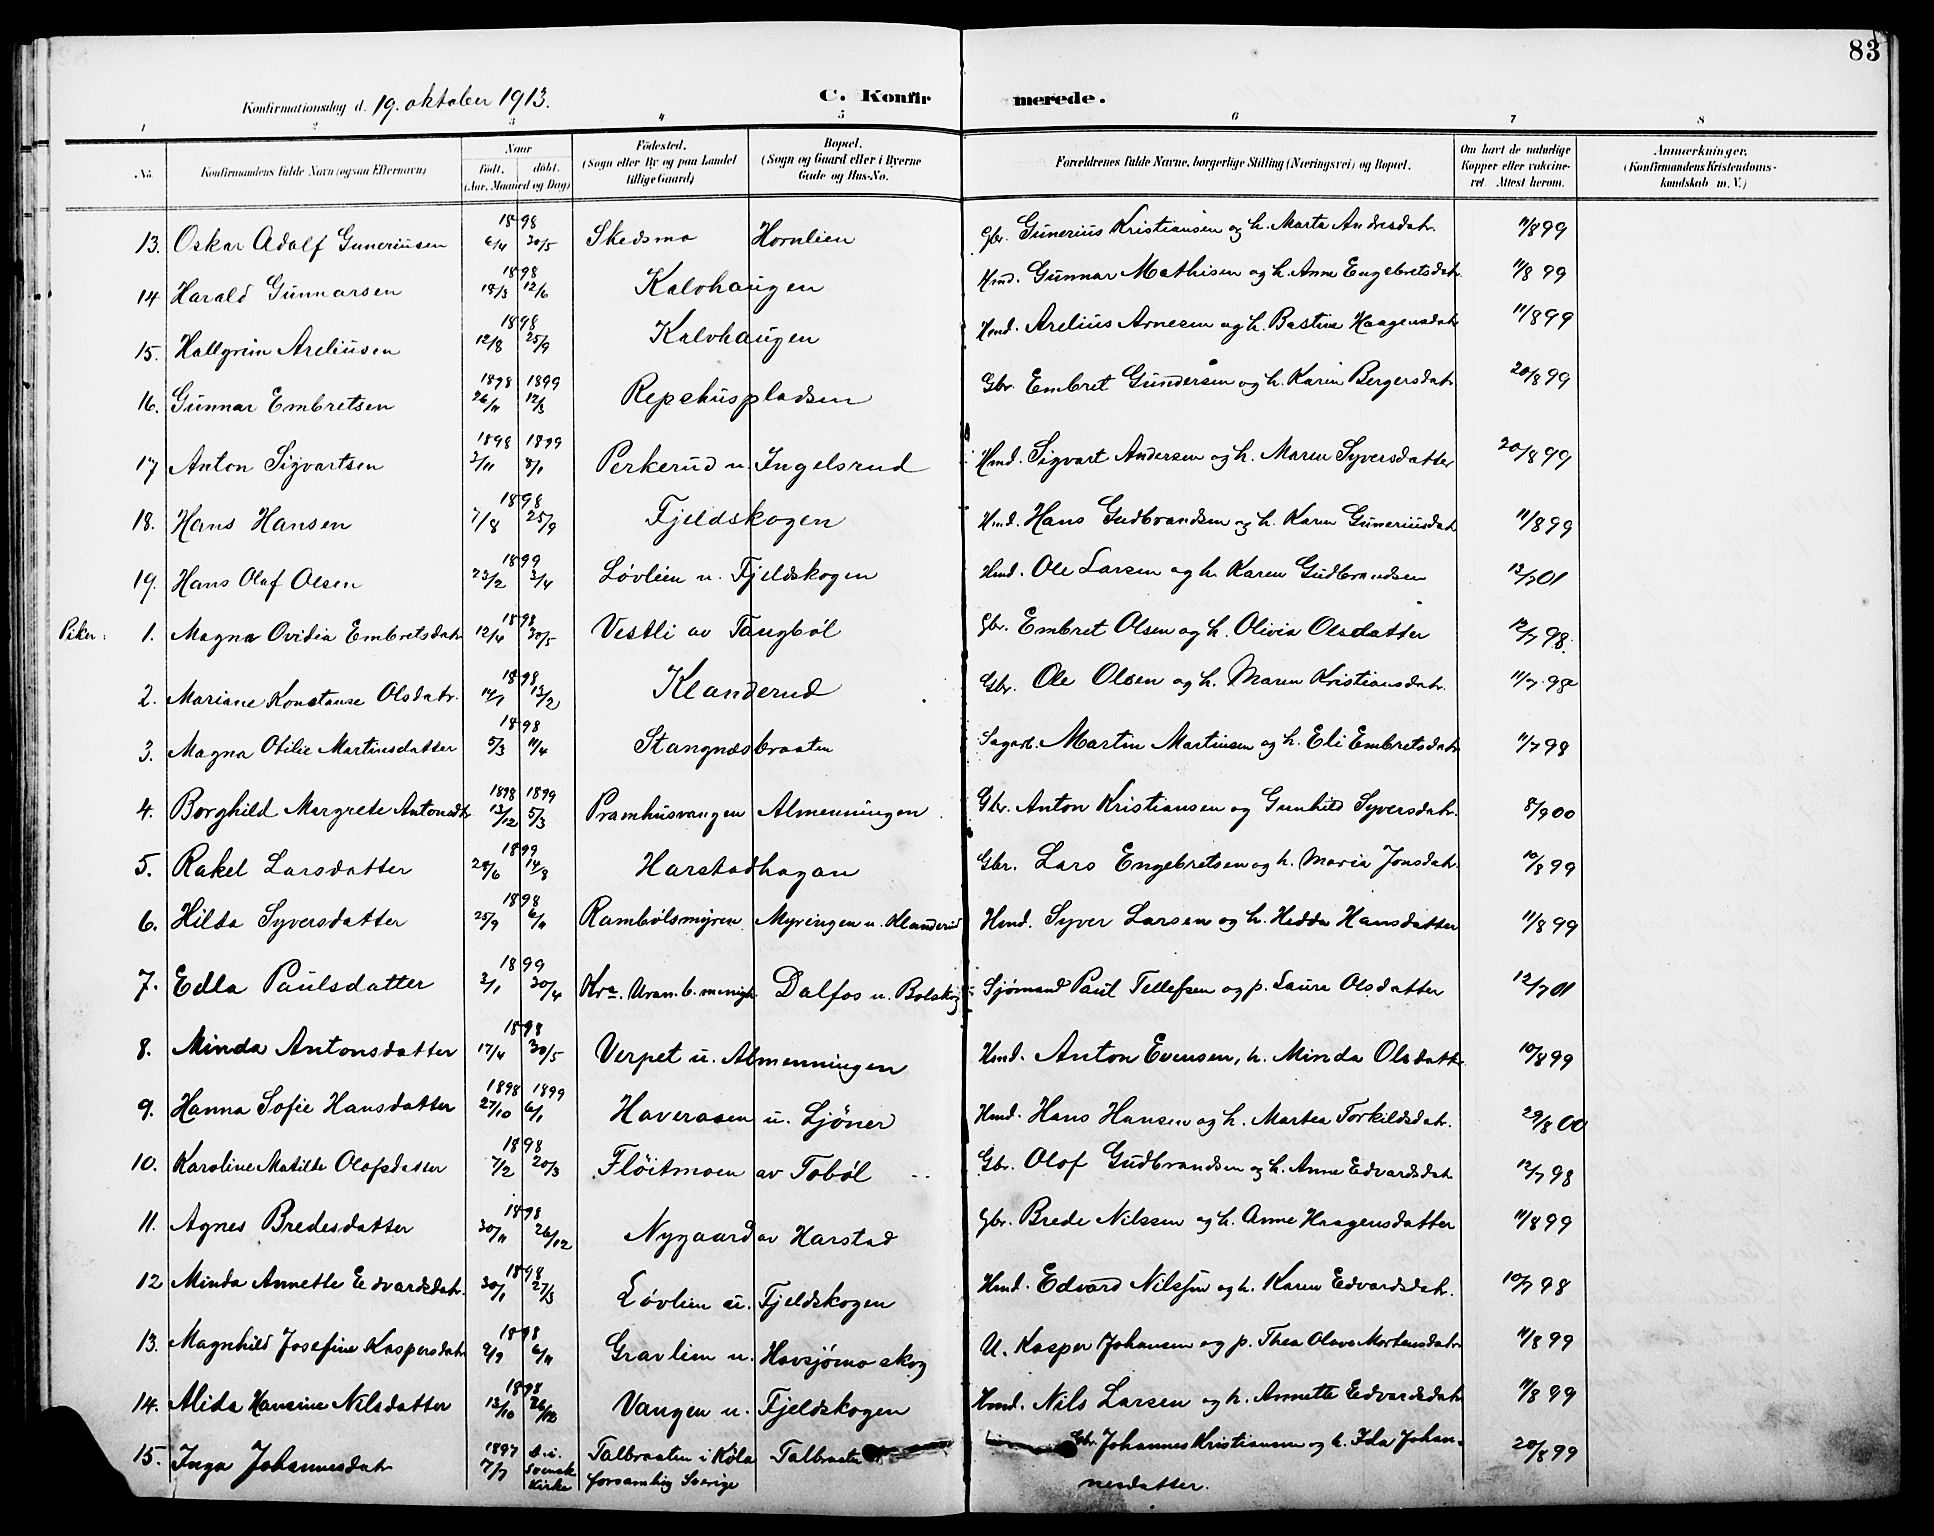 83
Konfirmationsdag d. 19. oktober 1913.
C. Konfirmerede.
1 2 3 4 5 6 7 8
No. Konfirmandens fulde Navn (ogsaa Efternavn) Naar født. døbt. (Aar, Maaned og Dag) Fødested. (Sogn eller By og paa Landet tillige Gaard) Bopæl. (Sogn og Gaard eller i Byerne Gade og Hus-No. Forældrenes fulde Navne, borgerlige Stilling (Næringsvei) og Bopæl. Om havt de naturlige Kopper eller vakcineret. Attest herom. Anmærkninger. (Konfirmandens Kristendomskundskab m. V.)
13. Oskar Adolf Guneriusen 1898 6/4 30/5 Skedsmo Hornlien Gbr. Gunerius Kristiansen og h. Marta Andresdatr. 11/8 99
14 Harald Gunnarsen 1898 18/3 12/6 Kalvhaugen Hmd. Gunnar Mathisen og h. Anne Engebretsdatr. 11/8 99
15. Hallgrim Areliusen 1898 12/8 25/9 Kalvhaugen Hmd. Arelius Arnesen og h. Bastine Haagensdatr 11/8 99
16. Gunnar Embretsen 1898 26/11 1899 12/3 Repshuspladsen Gbr. Embret Gundersen og h. Karin Bergersdatr. 20/8 99
17 Anton Sigvartsen 1898 2/11 1899 8/1 Perkerud u. Ingelsrud Hmd. Sigvart Andersen og h. Maren Syversdatter 20/8 99
18. Hans Hansen 1898 7/8 25/9 Fjeldskogen Hmd. Hans Gudbrandsen og h. Karen Guneriusdatr 11/8 99
19. Hans Olaf Olsen 1899 23/2 3/4 Løvlien u. Fjeldskogen Hmd. Ole Larsen og h. Karen Gudbrandsen 12/7 01
Piker: 1. Magna Ovidia Embretsdatr 1898 12/4 30/5 Vestli av Taugbøl Gbr. Embret Olsen og h. Olivia Olsdatter 12/7 98.
2. Mariane Konstanse Olsdatr. 1898 14/1 13/2 Klanderud Gbr. Ole Olsen og h. Maren Kristiansdatr. 11/7 98
3. Magna Otilie Martinsdatter 1898 5/3 11/4 Stangnæsbraaten Sagarb. Martin Martinsen og h. Eli Embretsdatr 11/7 98
4. Borghild Margrete Antonsdtr 1898 13/12 1899 5/3 Pramhusvangen Almenningen Gbr. Anton Kristiansen og Gunhild Syversdatr. 8/9 00
5. Rakel Larsdatter 1899 28/6 14/8 Harstadhagan Gbr. Lars Engebretsen og h. Maria Jonsdatr. 10/8 99
6. Hilda Syversdatter 1898 25/9 6/11 Rambølsmyren Myringen u. Klanderud Hmd. Syver Larsen og h. Hedda Hansdatter 11/8 99
7. Edla Paulsdatter 1899 2/1 30/4 Kra. Uran.b. menigh. Dalfos u. Bolskog Sjømand Paul Tellefsen og p. Laura Olsdatter 12/7 01
8. Minda Antonsdatter 1898 17/4 30/5 Verpet u. Almenningen Hmd. Anton Evensen, h. Minda Olsdatr. 10/8 99
9. Hanna Sofie Hansdatter 1898 27/10 1899 6/1 Haveraasen u. Sjøner Hmd. Hans Hansen og h. Martea Torkildsdatr. 29/8 00
10. Karoline Matilde Olafsdatter 1898 7/2 20/3 Fløitmoen av Tobøl Gbr. Olof Gudbrandsen og h. Anne Edvardsdatr 12/7 98
11. Agnes Bredesdatter 1898 30/11 26/12 Nygaard av Harstad Gbr. Brede Nilssen og h. Anne Haagensdatter 11/8 99
12 Minda Annette Edvardsdatr. 1898 30/1 27/3 Løvlien u. Fjeldskogen Hmd. Edvard Nilssen og h. Karen Edvardsdatr. 10/7 98
13. Magnhild Josefine Kaspersdatr 1898 2/9 6/11 Gravlien u. Havsjømo skog U. Kasper Johansen og p. Thea Olava Mortensdatr 11/8 99
14. Alida Hansine Nilsdatter 1898 13/10 26/12 Vangen u. Fjeldskogen Hmd. Nils Larsen og h. Annette Edvardsdatr 11/8 99
15. Inga Johannesdatr 1897 7/7 d. i. Svensk Kirke Talbraaten i Køla forsamling Sverige Talbraaten Gbr. Johannes Kristiansen og h. Ida Johan-
nesdatter. 20/8 99